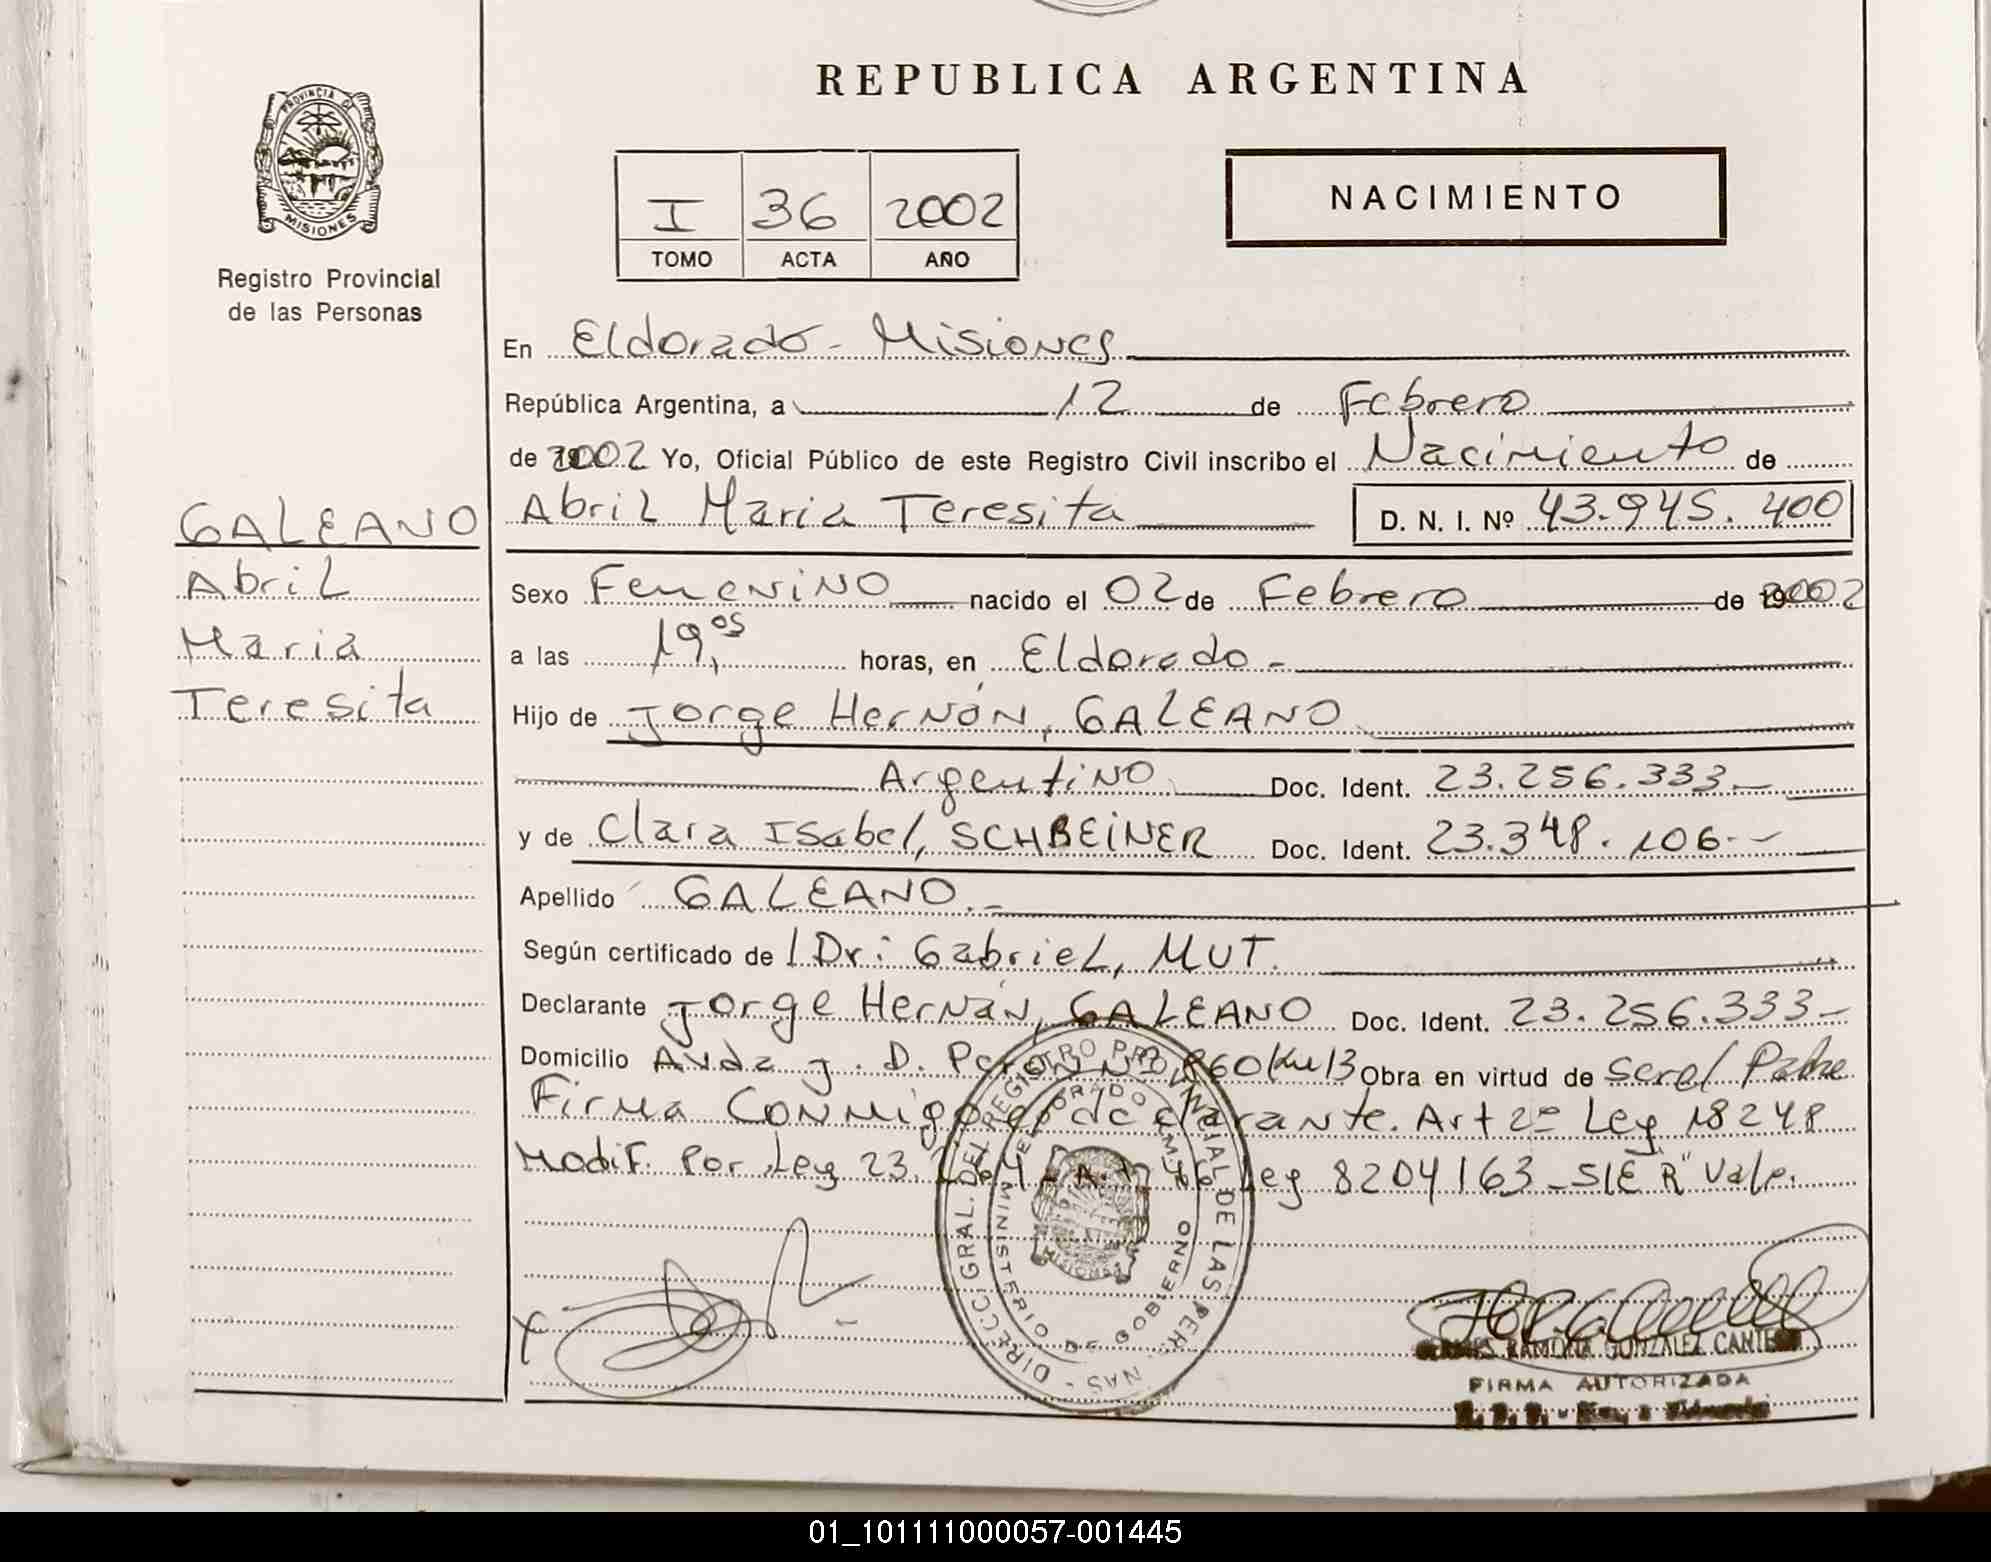 REPUBLICA ARGENTINA
PROVINCIA DE
MISIONES
Registro Provincial
de las Personas
I 36 2002
TOMO ACTA AÑO
NACIMIENTO
En Eldorado - Misiones
República Argentina, a 12 de Febrero
de 2002 Yo, Oficial Público de este Registro Civil inscribo el Nacimiento de
Abril Maria Teresita D. N. I. Nº 43.945.400
GALEANO
Abril
Maria
Teresita
Sexo Femenino nacido el 02 de Febrero de 2002
a las 19,05 horas, en Eldorado -
Hijo de Jorge Hernán, GALEANO
Argentino Doc. Ident. 23.256.333-
y de Clara Isabel, SCHBEINER Doc. Ident. 23.348.106.-
Apellido GALEANO.-
Según certificado de Dr: Gabriel, MUT.
Declarante Jorge Hernán, GALEANO Doc. Ident. 23.256.333-
Domicilio Avda J. D. Perón Nº 860 Km 13 Obra en virtud de ser el Padre
Firma Conmigo el declarante. Art 2º Ley 18248
Modif. Por Ley 23.264 - A. 46 Ley 8204/63 - S/E "R" Vale.
DIRECCI GRAL. DEL REGISTRO PROVINCIAL DE LAS PER NAS -
ELDORADO
MINISTERIO DE GOBIERNO
RAMONA GONZALEZ
FIRMA AUTORIZADA
01_101111000057-001445